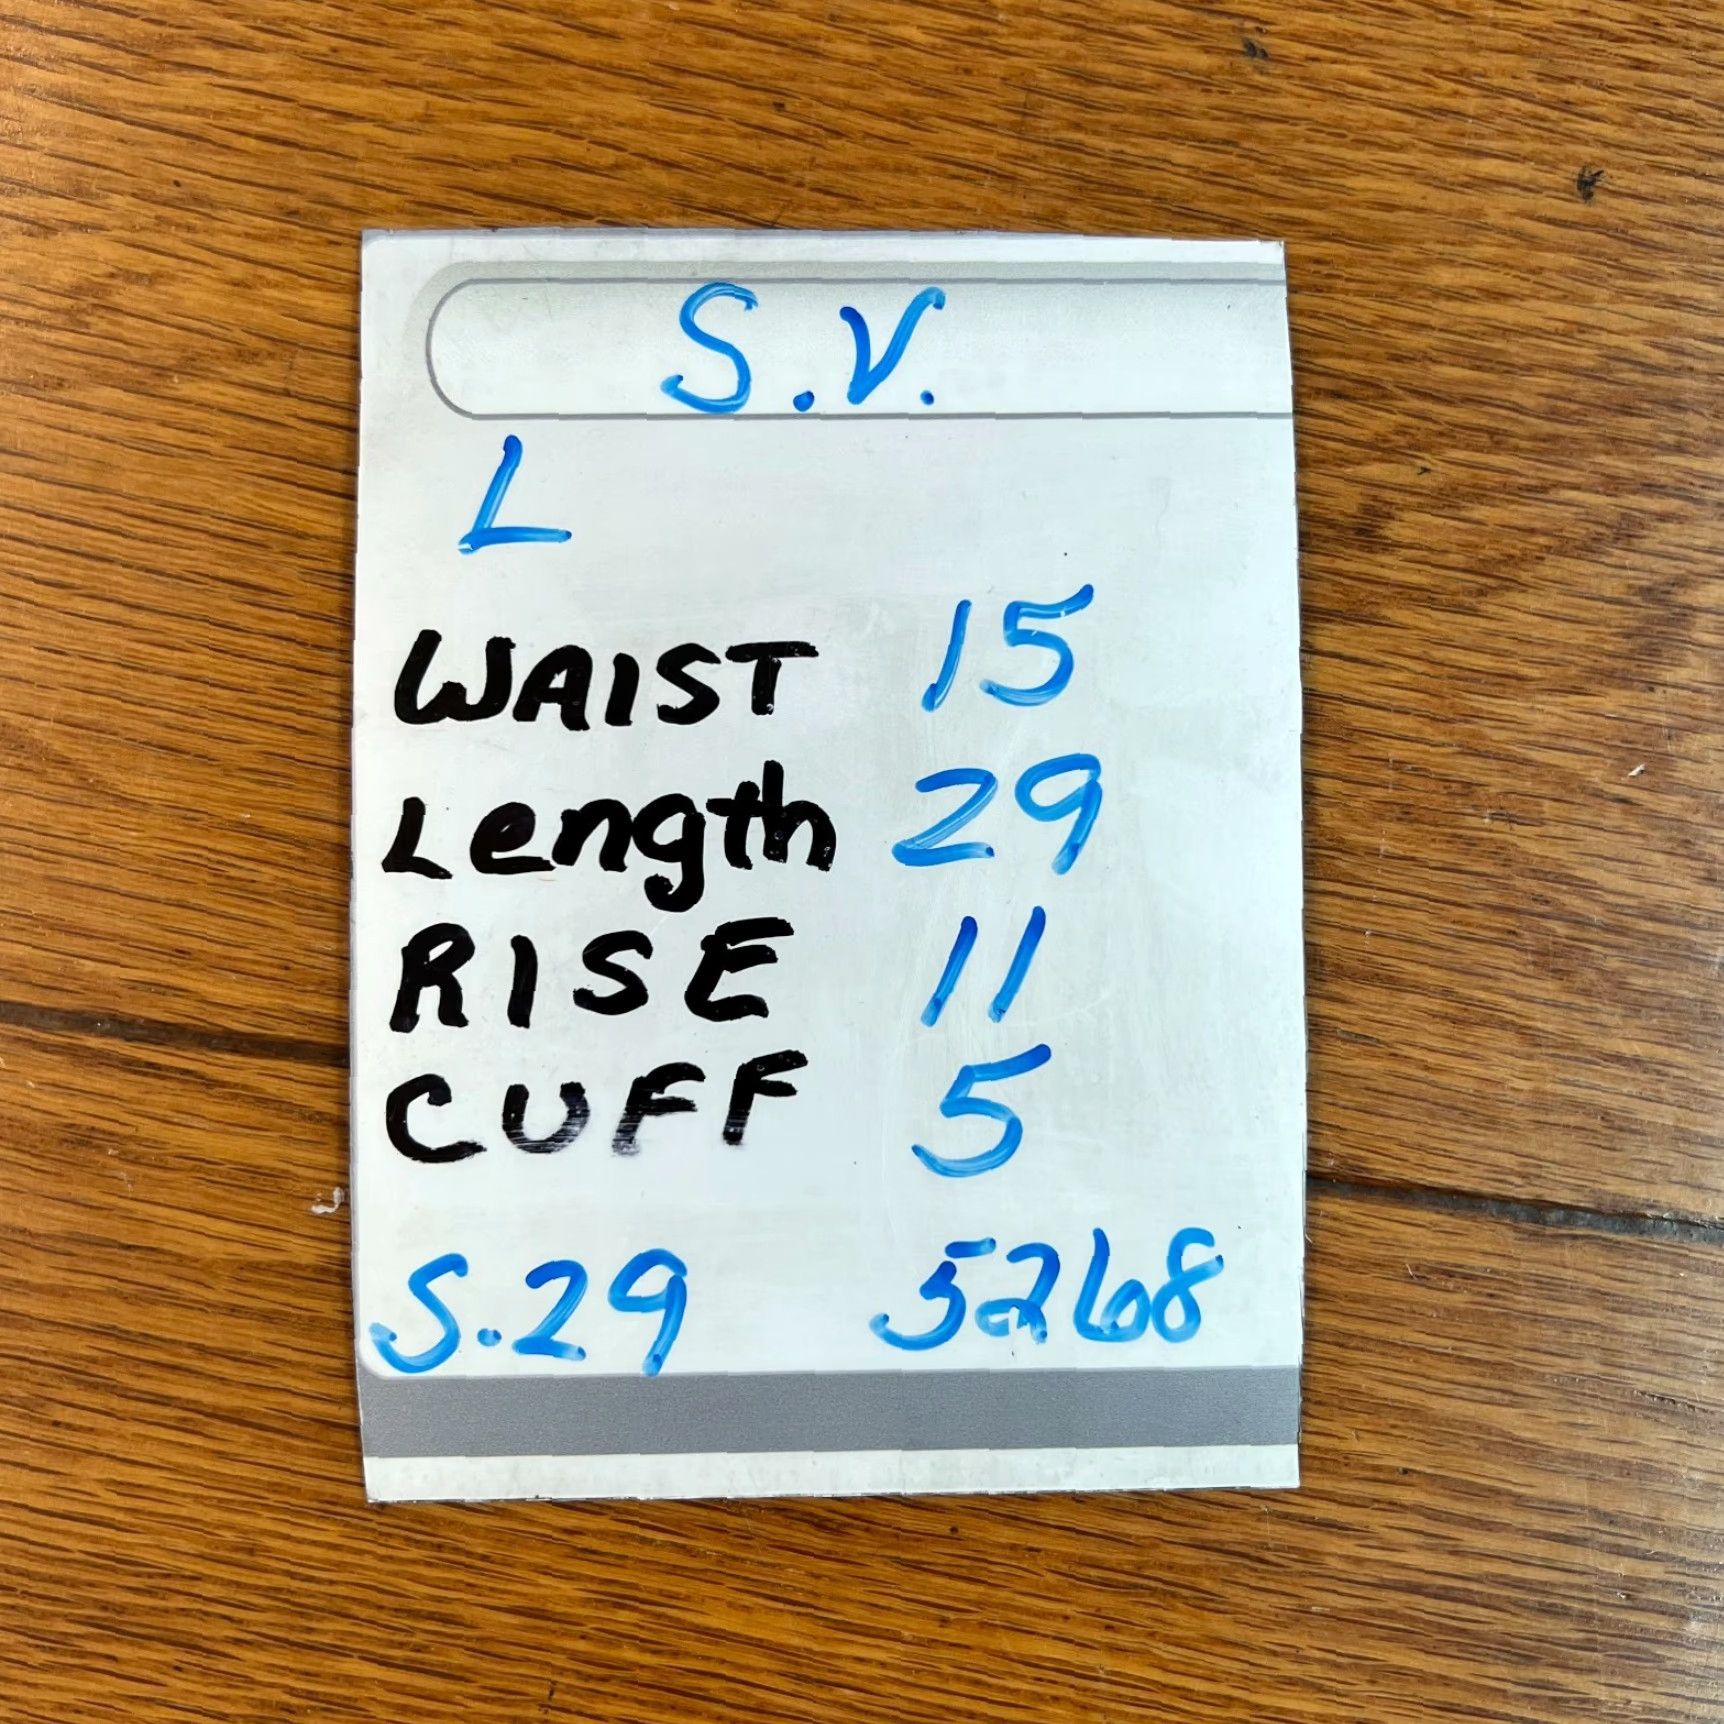 S.V.
L
WAIST 15
Length 29
RISE 11
CUFF 5
S.29 5268